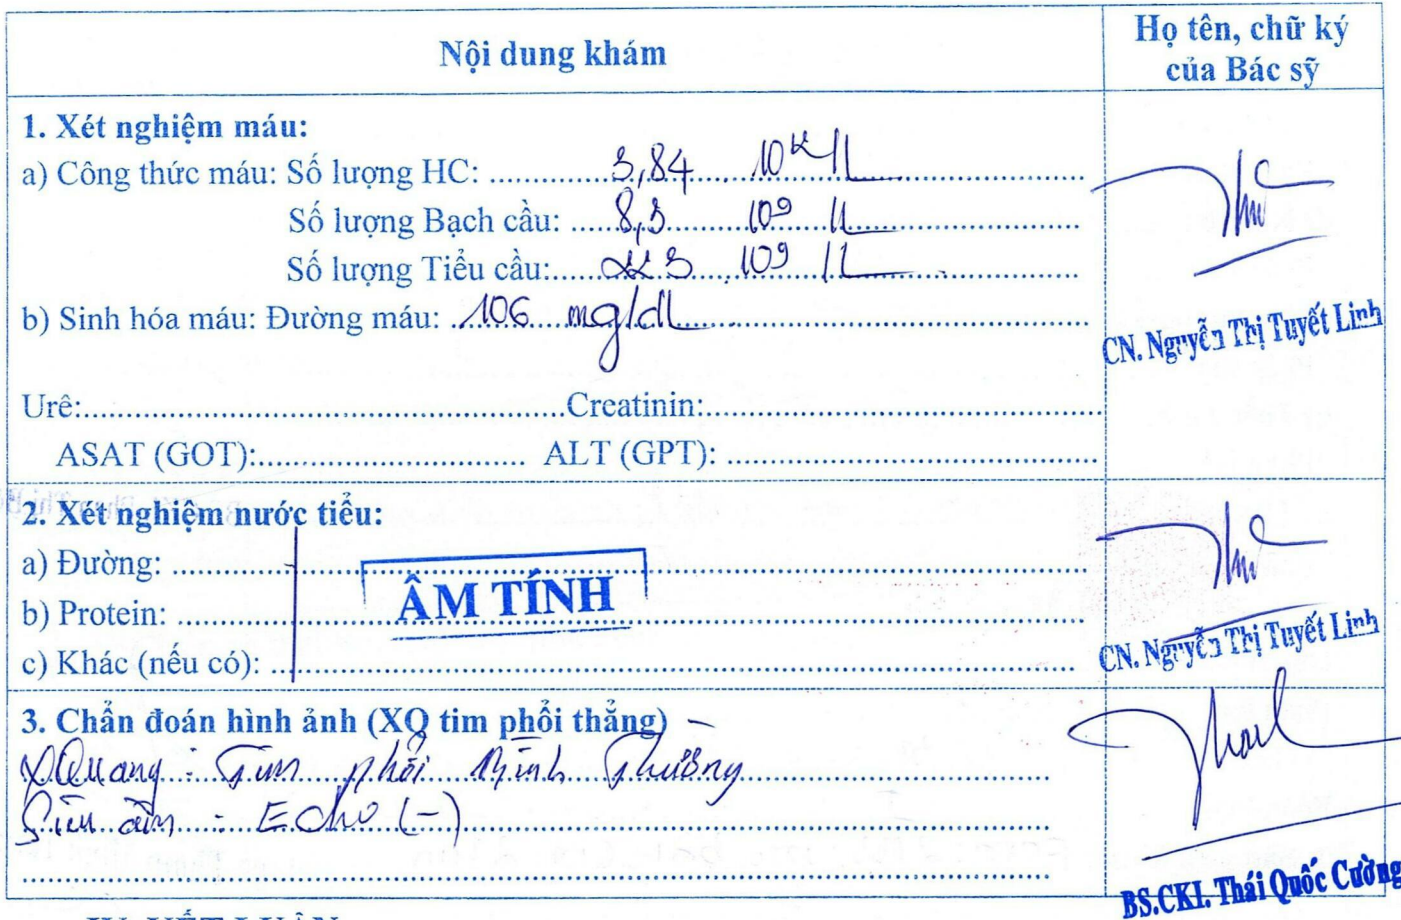 Nội dung khám
Họ tên, chữ ký
của Bác sỹ
1. Xét nghiệm máu:
a) Công thức máu: Số lượng HC: 3,84 10¹²/L
Số lượng Bạch cầu: 8,3 10⁹/L
Số lượng Tiểu cầu: 223 10⁹/L
b) Sinh hóa máu: Đường máu: 106 mg/dL
CN. Nguyễn Thị Tuyết Linh
Urê: Creatinin:
ASAT (GOT): ALT (GPT):
2. Xét nghiệm nước tiểu:
a) Đường:
ÂM TÍNH
b) Protein:
c) Khác (nếu có):
CN. Nguyễn Thị Tuyết Linh
3. Chẩn đoán hình ảnh (XQ tim phổi thẳng)
XQuang: Tim phổi Bình Thường
Siêu âm: Echo (-)
BS.CKI. Thái Quốc Cường
IV. KẾT LUẬN